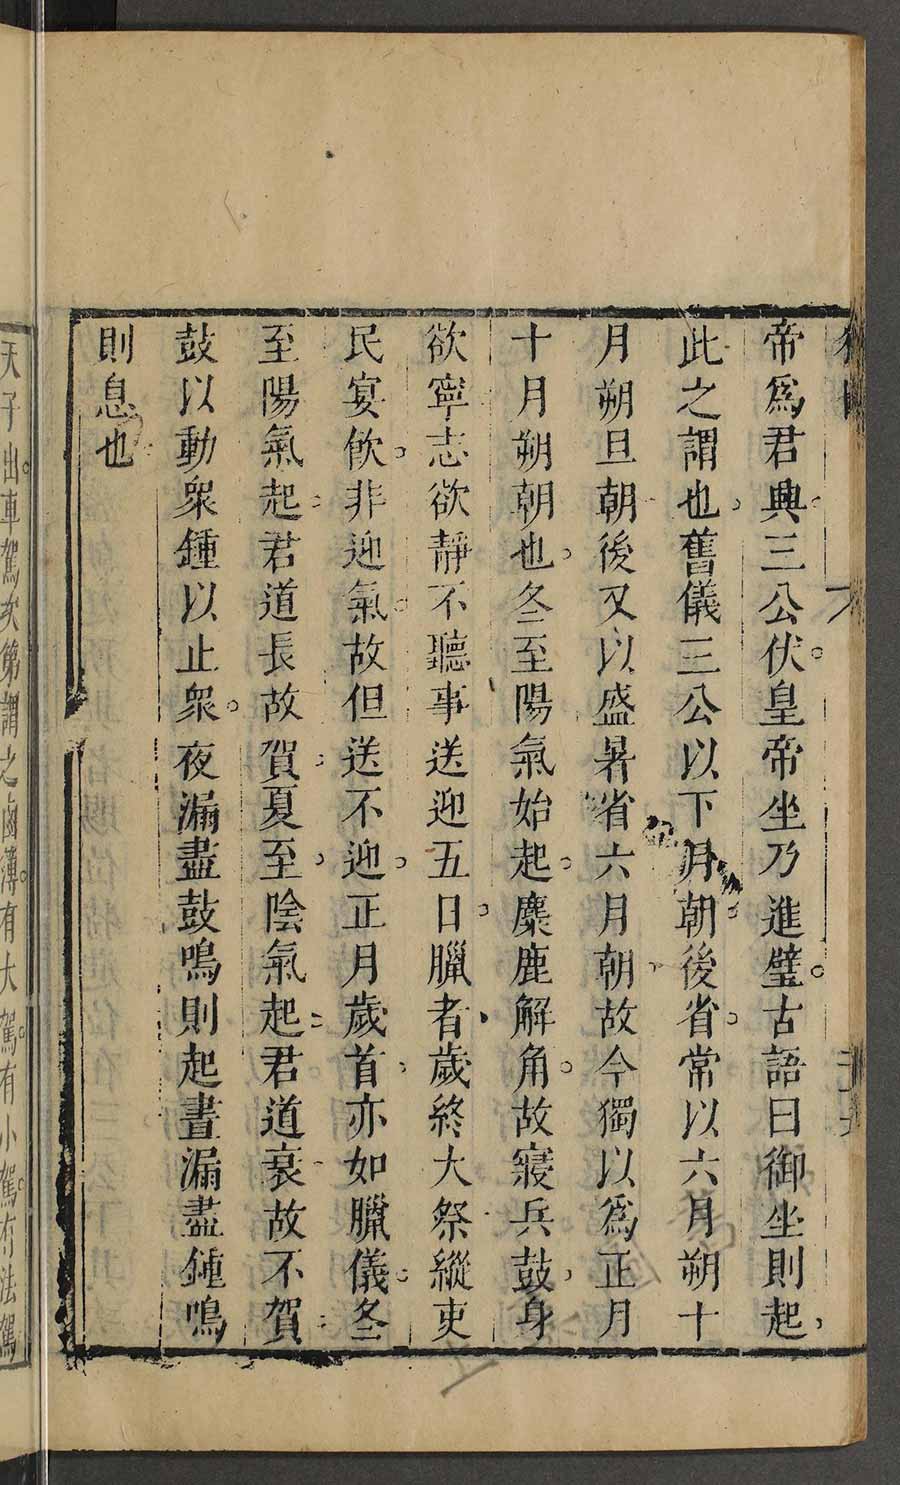 帝爲君興三公伏皇帝坐乃進璧古語曰御坐則起
此之謂也舊儀三公以下月朝後省常以六月朔十
月朔旦朝後又以盛暑省六月朝故今獨以爲正月
十月朔朝也冬至陽氣始起麋鹿解角故寢兵鼓身
欲寧志欲靜不聽事送迎五日臘者歲終大祭縱吏
民宴飲非迎氣故但送不迎正月歲首亦如臘儀冬
至陽氣起君道長故賀夏至陰氣起君道衰故不賀
鼓以動衆鍾以止衆夜漏盡鼓鳴則起晝漏盡鍾鳴
則息也
天子出車駕次第謂之鹵簿有大駕有小駕有法駕